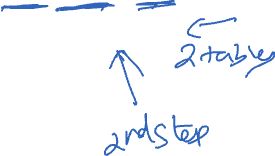 2 tables
2nd step